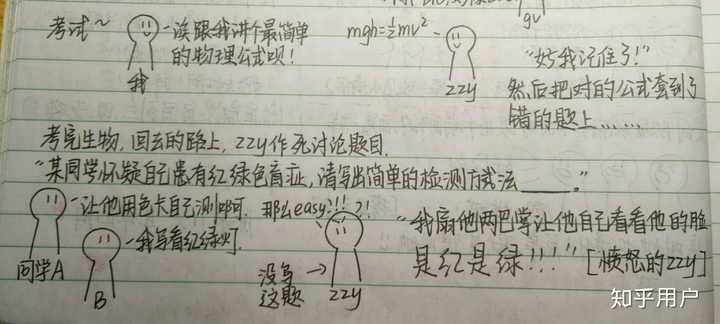 考试~
我
-诶跟我讲个最简单
的物理公式呗!
mgh=½mv²-
zzy
gv
"好我记住了!"
然后把对的公式套到了
错的题上……
考完生物,回去的路上,zzy作死讨论题目.
"某同学怀疑自己患有红绿色盲症,请写出简单的检测方式法____."
-让他用色卡自己测啊. 那么easy?!! ?!
同学A
-我写看红绿灯.
B
没写
这题
→
zzy
"我扇他两巴掌让他自己看看他的脸
是红是绿!!!" [愤怒的zzy]
知乎用户